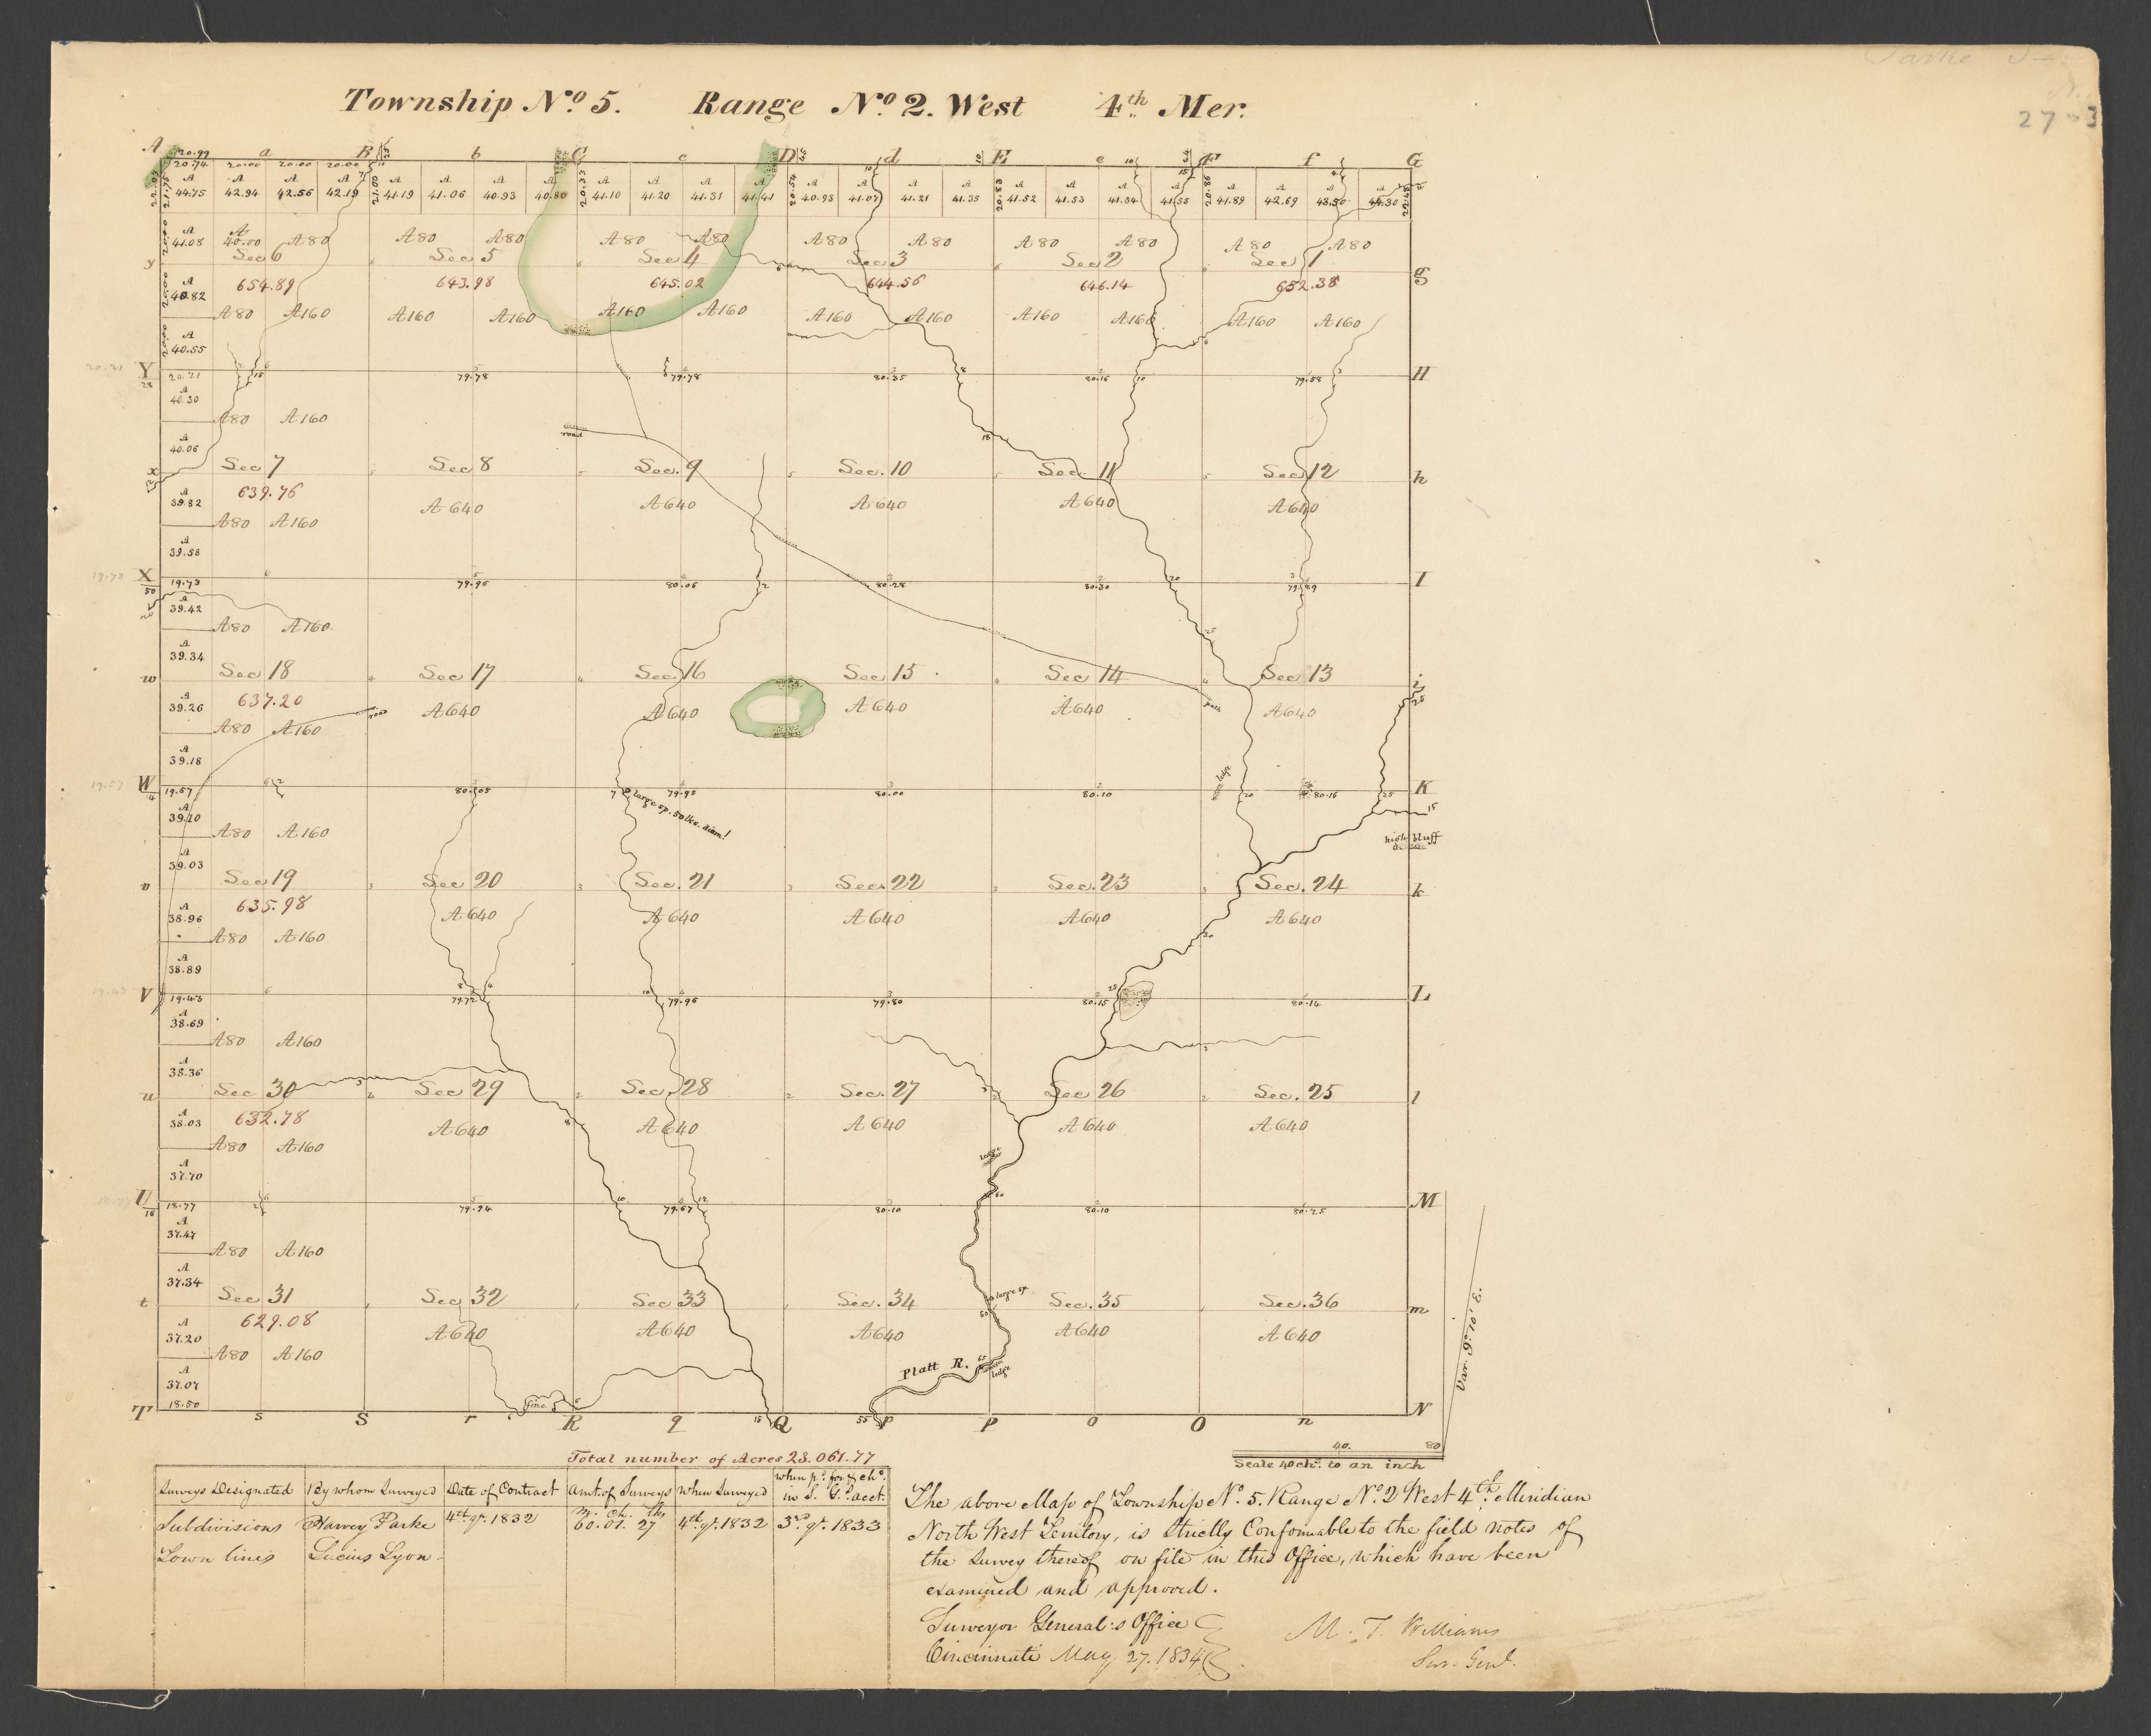 27
Township No. 5. Range No. 2. West 4th Mer.
A a B b C c D d E e F f G
20.99
20.74 20.00 20.00 20.00
A A A A A A A A A A A A A A A A A A A A A A A A
44.75 42.94 42.56 42.19 41.19 41.06 40.93 40.80 41.10 41.20 41.31 41.41 40.93 41.07 41.21 41.35 41.52 41.53 41.54 41.55 41.89 42.69 43.50 44.30
A 41.08 A 40.00 A 80 A 80 A 80 A 80 A 80 A 80 A 80 A 80 A 80 A 80 A 80
y Sec 6 Sec 5 Sec 4 Sec 3 Sec 2 Sec 1 g
A 40.82 654.89 643.98 645.02 644.56 646.14 652.38
A 80 A 160 A 160 A 160 A 160 A 160 A 160 A 160 A 160 A 160 A 160 A 160
A 40.55
Y 20.21 79.78 79.78 80.35 80.16 79.58 H
A 40.30
A 80 A 160
road
A 40.06
x Sec 7 Sec 8 Sec. 9 Sec. 10 Sec. 11 Sec 12 h
A 39.82 639.76 A 640 A 640 A 640 A 640 A 640
A 80 A 160
A 39.58
X 19.73 79.95 80.06 80.28 80.30 79.89 I
50
A 39.42
A 80 A 160
A 39.34
w Sec 18 Sec 17 Sec 16 Sec 15 Sec 14 Sec 13 i
A 39.26 637.20 A 640 A 640 A 640 A 640 A 640
road path
A 80 A 160
A 39.18
ledge
W 19.57 80.05 79.95 80.00 80.10 80.16 K
large sp. 50 lks. diam!
A 39.10
A 80 A 160
high bluff
A 39.03
v Sec 19 Sec 20 Sec. 21 Sec. 22 Sec. 23 Sec. 24 k
A 38.96 635.98 A 640 A 640 A 640 A 640 A 640
A 80 A 160
A 38.89
V 19.43 79.72 79.96 79.80 80.15 80.14 L
A 38.69
A 80 A 160
A 38.36
u Sec 30 Sec 29 Sec. 28 Sec. 27 Sec 26 Sec. 25 l
A 38.03 632.78 A 640 A 640 A 640 A 640 A 640
A 80 A 160
ledge
A 37.70
U 18.77 79.94 79.67 80.10 80.10 80.25 M
16
A 37.47
A 80 A 160
A 37.34
large sp.
t Sec 31 Sec 32 Sec 33 Sec. 34 Sec. 35 Sec. 36 m
A 37.20 629.08 A 640 A 640 A 640 A 640 A 640
A 80 A 160
Platt R.
ledge
A 37.07
Var. 9° 10' E.
T 18.50 N
s S r R q Q p P o O n
Total number of Acres 23.061.77
40. 80
Scale 40 chs. to an inch
Surveys Designated By whom Surveyed Date of Contract Amt. of Surveys When Surveyed When pd. for & chd. in S. G's acct.
M. Ch. lks
Subdivisions Harvey Parke 4th qr. 1832 60. 01. 27 4th qr. 1832 3rd qr. 1833
Town lines Lucius Lyon
The above Map of Township No. 5. Range No. 2 West 4th Meridian
North West Territory, is Strictly Conformable to the field notes of
the Survey thereof on file in this Office, which have been
examined and approved.
Surveyor General's Office
Cincinnati May 27. 1834
M. T. Williams
Sur. Genl.